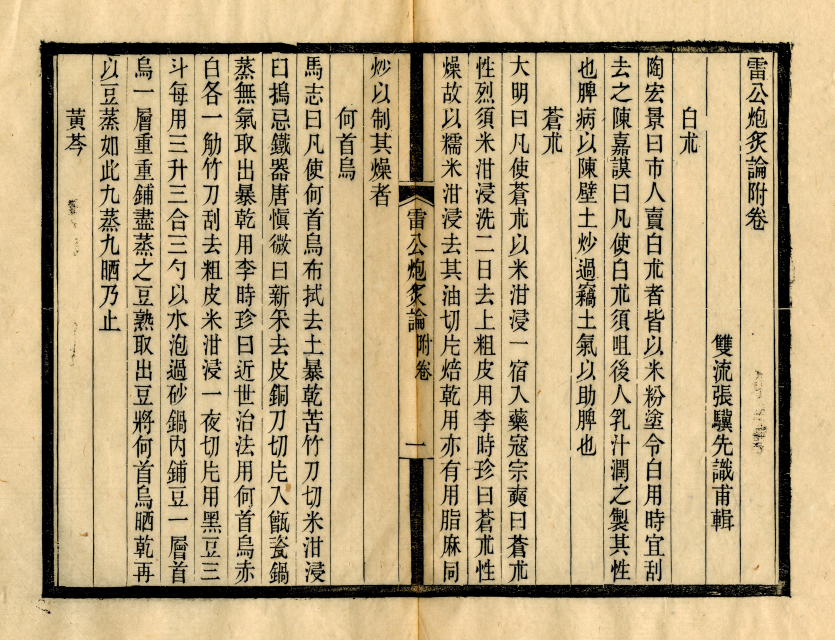 雷公炮炙論附卷
雙流張驥先識甫輯
白朮
陶宏景曰市人賣白朮者皆以米粉塗令白用時宜刮
去之陳嘉謨曰凡使白朮須咀後人乳汁潤之製其性
也脾病以陳壁土炒過竊土氣以助脾也
蒼朮
大明曰凡使蒼朮以米泔浸一宿入藥寇宗奭曰蒼朮
性烈須米泔浸洗二日去上粗皮用李時珍曰蒼朮性
燥故以糯米泔浸去其油切片焙乾用亦有用脂麻同
雷公炮炙論 附卷 一
炒以制其燥者
何首烏
馬志曰凡使何首烏布拭去土暴乾苦竹刀切米泔浸
曰搗忌鐵器唐慎微曰新采去皮銅刀切片入甑瓷鍋
蒸無氣取出暴乾用李時珍曰近世治法用何首烏赤
白各一觔竹刀刮去粗皮米泔浸一夜切片用黑豆三
斗每用三升三合三勺以水泡過砂鍋內鋪豆一層首
烏一層重重鋪盡蒸之豆熟取出豆將何首烏晒乾再
以豆蒸如此九蒸九晒乃止
黃芩